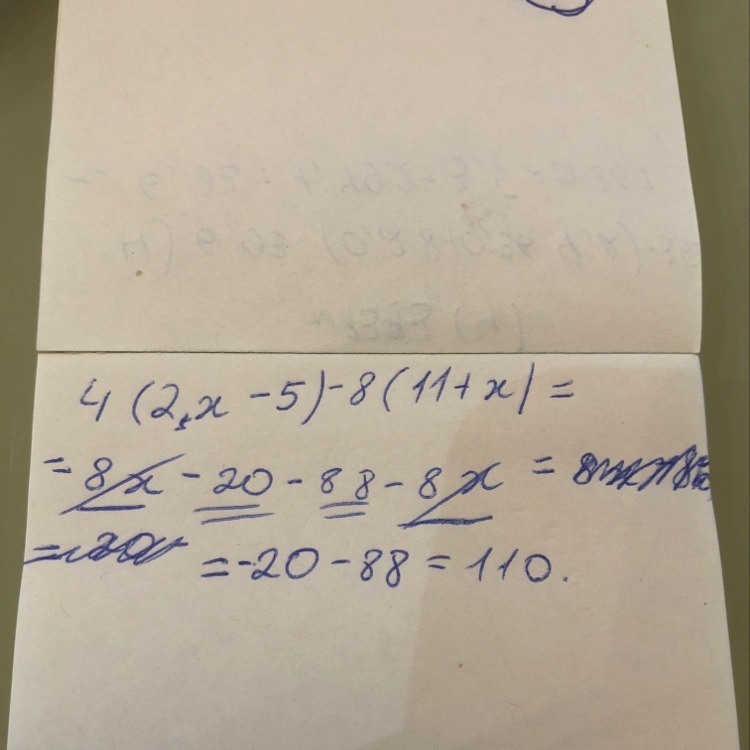 4(2x-5)-8(11+x)=
=8x-20-88-8x=
=-20-88=110.